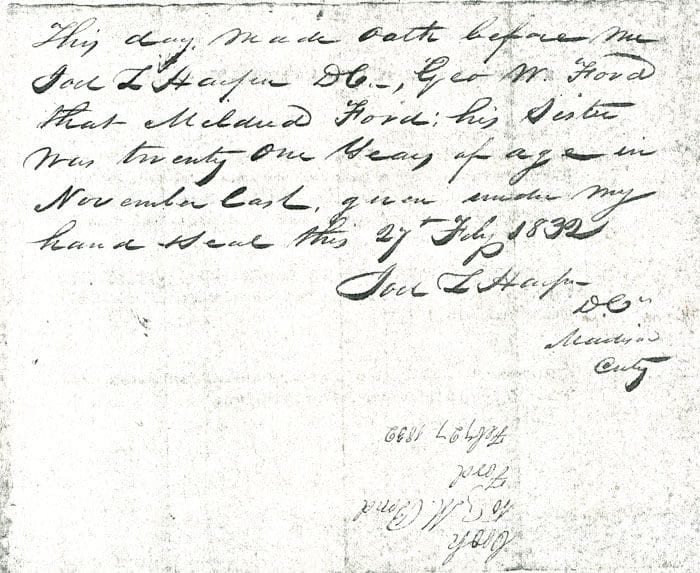 This day made oath before me
Joel L Harper DC, Geo W. Ford
that Mildred Ford; his Sister
was twenty One Years of age in
November last, given under my
hand & Seal this 27t Feby 1832
Joel L Harper
D.C.
Madison
Cnty
Cook
to M. Bond
Ford
Feby 27 1832